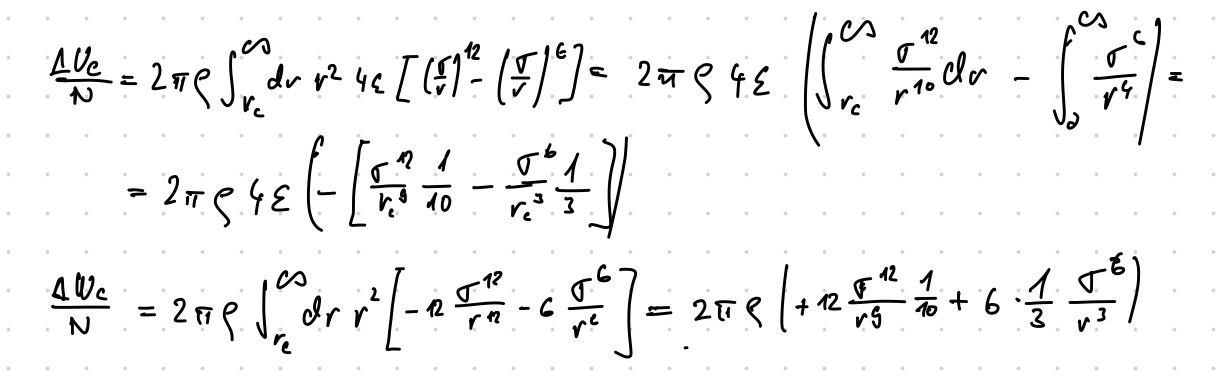 ΔU_c/N = 2πρ ∫_{r_c}^{∞} dr r² 4ε [(σ/r)^{12} - (σ/r)^6] = 2πρ 4ε (∫_{r_c}^{∞} σ^{12}/r^{10} dr - ∫_{2}^{∞} σ^6/r^4) =
= 2πρ 4ε (-[σ^{12}/r_c^9 1/10 - σ^6/r_c^3 1/3])
ΔW_c/N = 2πρ ∫_{r_c}^{∞} dr r² [-12 σ^{12}/r^{12} - 6 σ^6/r^6] = 2πρ (+12 σ^{12}/r^9 1/10 + 6 · 1/3 σ^6/r^3)